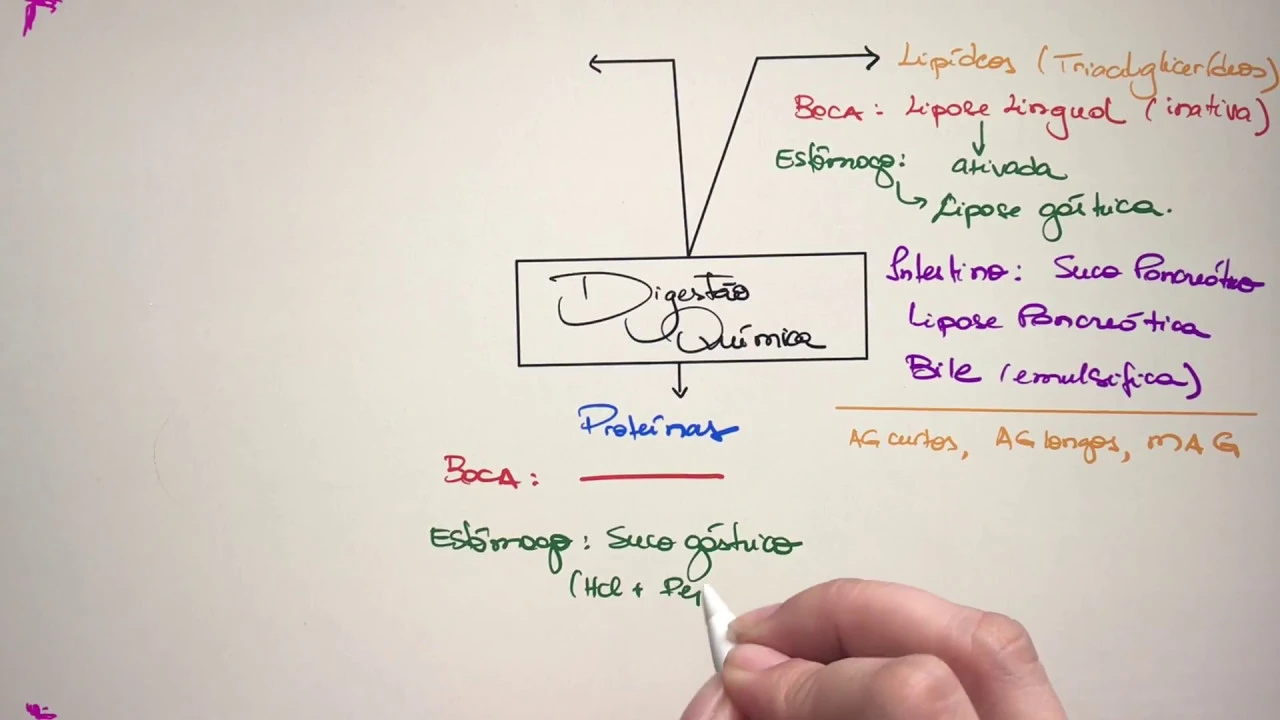 Lipídeos (Triacilglicerídeos)
Boca: Lipase Lingual (inativa)
Estômago: ativada
Lipase gástrica.
Intestino: Suco Pancreático
Lipase Pancreática
Bile (emulsifica)
AG curtos, AG longos, MAG
Digestão
Química
Proteínas
Boca:
Estômago: Suco gástrico
(Hcl + Pep